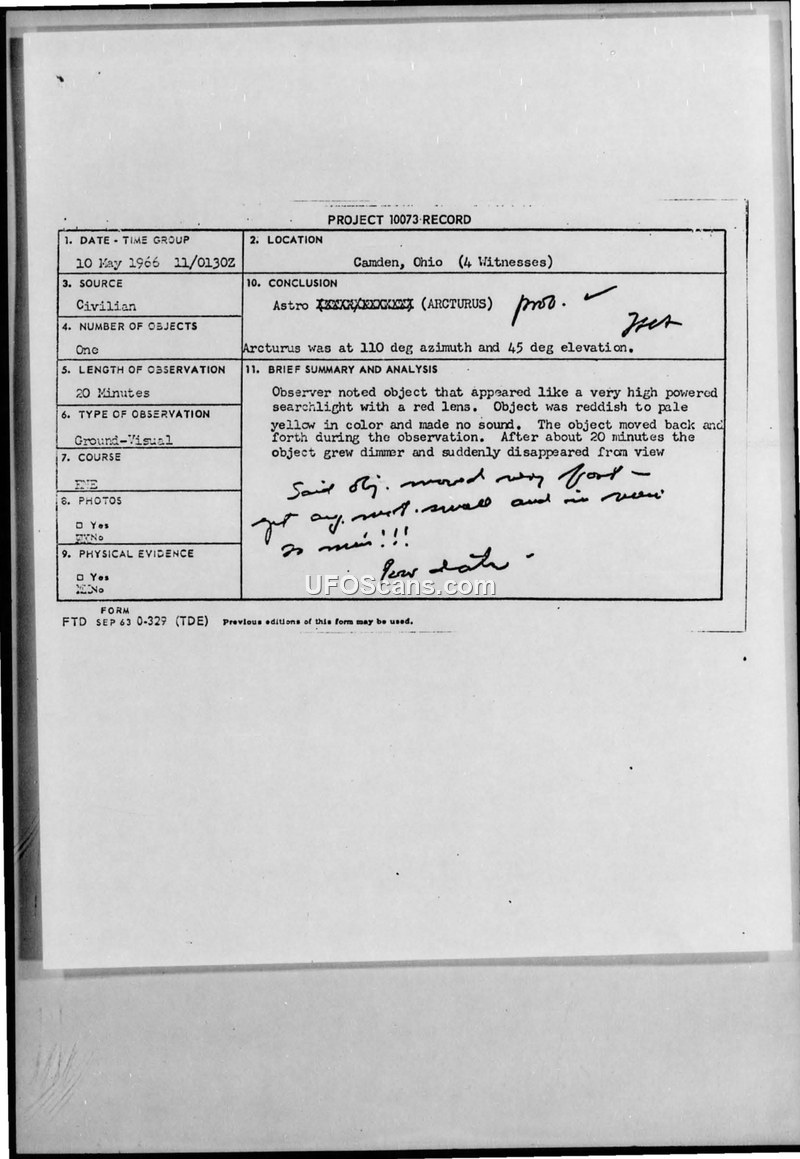 PROJECT 10073 RECORD
1. DATE - TIME GROUP
10 May 1966 11/0130Z
2. LOCATION
Camden, Ohio (4 Witnesses)
3. SOURCE
Civilian
10. CONCLUSION
Astro (ARCTURUS) prob.
Arcturus was at 110 deg azimuth and 45 deg elevation.
4. NUMBER OF OBJECTS
One
5. LENGTH OF OBSERVATION
20 Minutes
11. BRIEF SUMMARY AND ANALYSIS
Observer noted object that appeared like a very high powered
searchlight with a red lens. Object was reddish to pale
yellow in color and made no sound. The object moved back and
forth during the observation. After about 20 minutes the
object grew dimmer and suddenly disappeared from view
6. TYPE OF OBSERVATION
Ground-Visual
7. COURSE
ENE
8. PHOTOS
□ Yes
No
9. PHYSICAL EVIDENCE
□ Yes
No
Said obj. moved very fast -
yet ang. small and in view
20 min!!!
Poor data -
UFOScans.com
FORM
FTD SEP 63 0-329 (TDE) Previous editions of this form may be used.